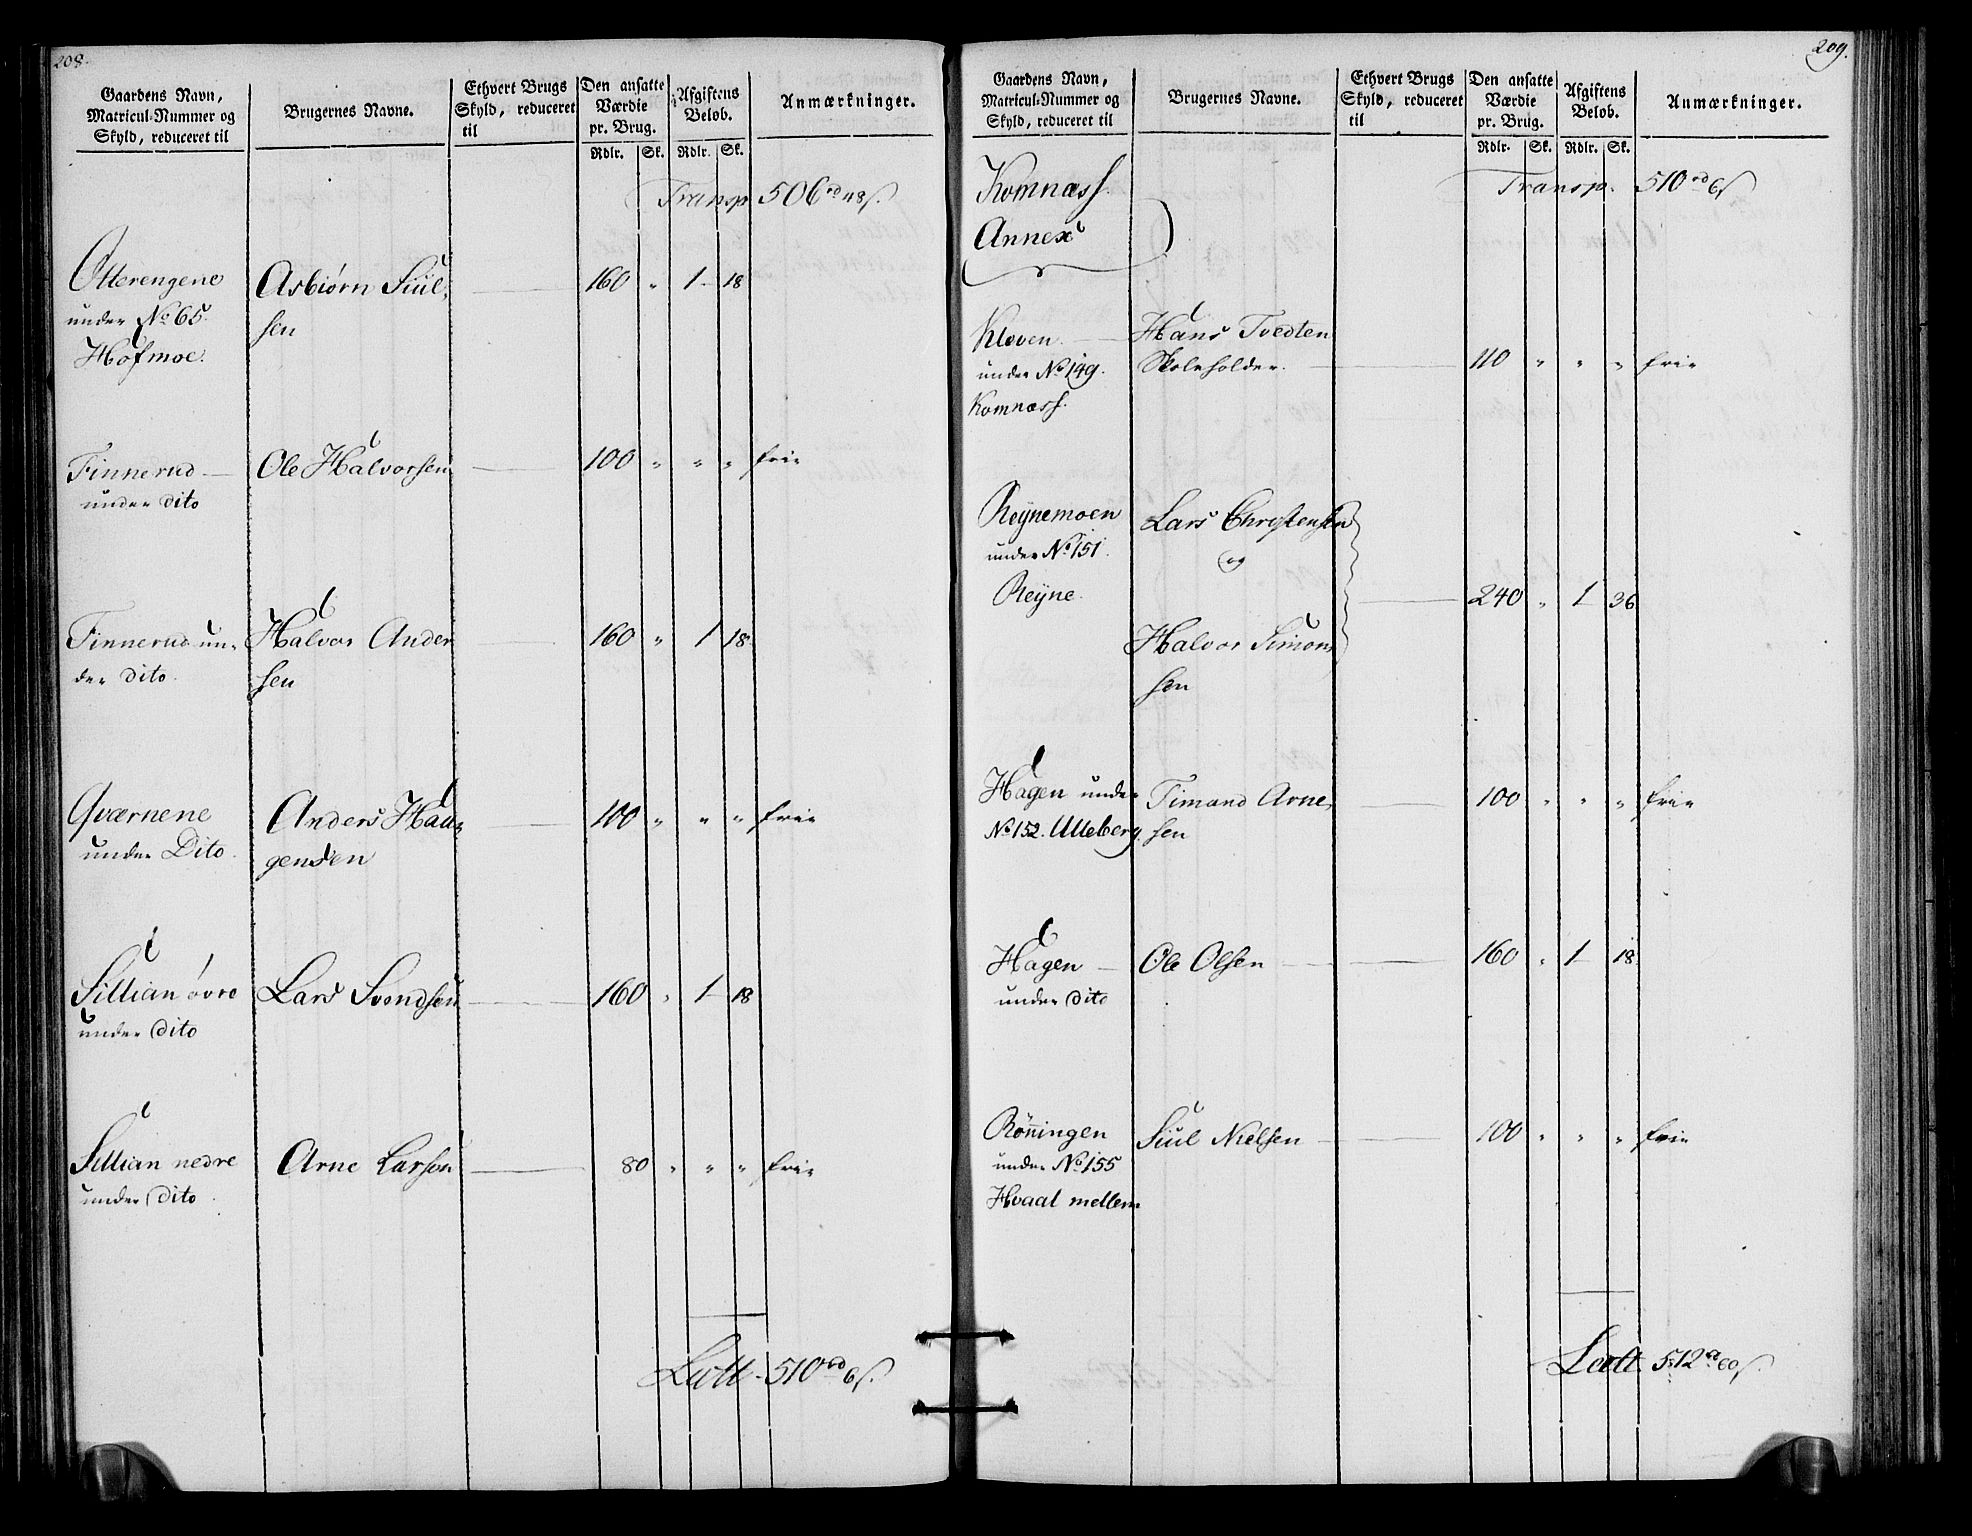 208.
Gaardens Navn, Matricul-Nummer og Skyld, reduceret til
Brugernes Navne.
Ethvert Brugs Skyld, reduceret til
Den ansatte Værdie pr. Brug.
Afgiftens Beløb.
Anmærkninger.
Rdlr. Sk. Rdlr. Sk.
Transp. 506 rd 48 s.
Otterengene Asbiørn Siul- 160 " 1 18
under No 65. sen
Hofmoe.
Finnerud Ole Halvorsen 100 " " " frie
under dito
Finnerud un- Halvor Ander 160 " 1 18
der dito. sen
Qværnene Anders Haa- 100 " " " frie
under Dito. gensen
Sillian övre Lars Svendsen 160 " 1 18
under dito
Sillian nedre Arne Larsen 80 " " " frie
under dito.
Latt. 510 rd 6 s.
209.
Gaardens Navn, Matricul-Nummer og Skyld, reduceret til
Brugernes Navne.
Ethvert Brugs Skyld, reduceret til
Den ansatte Værdie pr. Brug.
Afgiftens Beløb.
Anmærkninger.
Rdlr. Sk. Rdlr. Sk.
Komnæss. Transp. 510 rd 6 s
Annex
Kloven. Hans Tvedten
under No 149. Skoleholder. 110 " " " frie
Komnæss.
Reÿnemoen Lars Christensen
under No 151. og
Reÿne. 240 " 1 36
Halvor Simon
sen
Hagen under Timand Arne, 100 " " " frie
No 152. Ulleberg. sen
Hagen Ole Olsen 160 " 1 18
under dito
Rönningen Siul Nielsen 100 " " " frie
under No 155
Hvaal mellem
Latt. 512 rd 60 s.